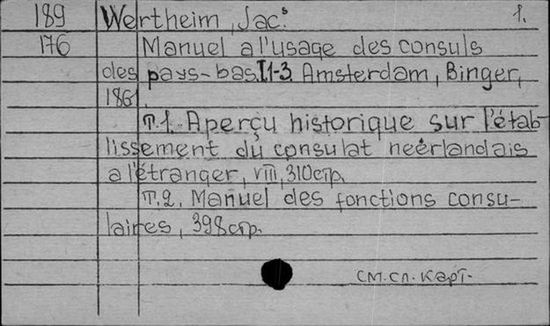 189 Wertheim, Jac.ˢ 1.
176 Manuel a l'usage des consuls
des pays-bas. T.1-3. Amsterdam, Binger,
1861.
Т.1. Aperçu historique sur l'étab-
lissement du consulat neérlandais
a l'étranger, VIII, 310стр.
Т.2. Manuel des fonctions consu-
laires, 398стр.
см.сл. карт.